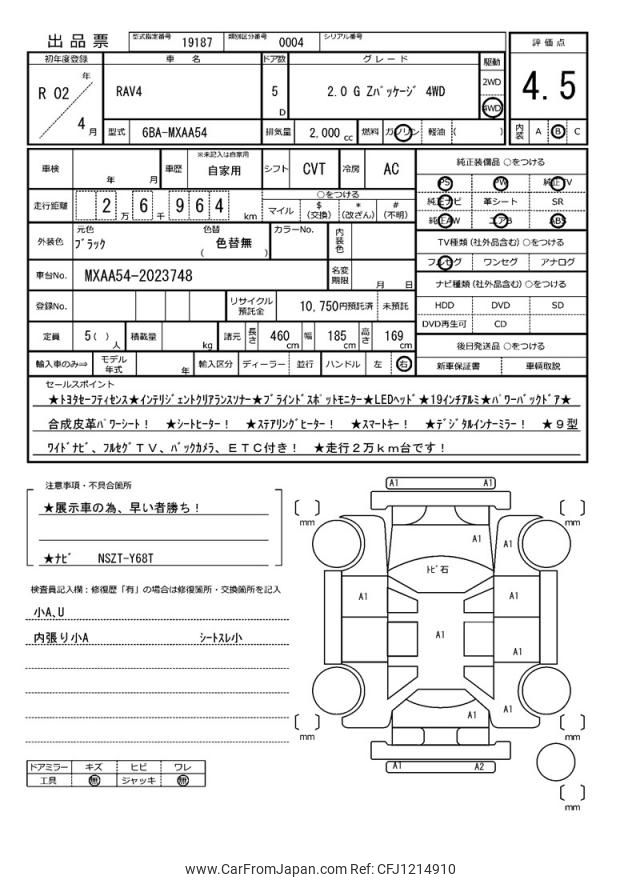 出品票 型式指定番号 19187 類別区分番号 0004 シリアル番号
評価点
4.5
内装 A B C
初年度登録 車名 ドア数 グレード 駆動
R 02 年 4 月
RAV4
5 D
2.0 G Zパッケージ 4WD
2WD
4WD
型式 6BA-MXAA54 排気量 2,000 cc 燃料 ガソリン 軽油 ( )
車検 年 月 車歴 ※未記入は自家用 自家用 シフト CVT 冷房 AC
走行距離 2 万 6 千 9 6 4 km
○をつける
マイル $ (交換) * (改ざん) # (不明)
外装色 元色 ブラック 色替 ( 色替無 ) カラーNo. 内装色
車台No. MXAA54-2023748 名変期限 月 日
登録No. リサイクル預託金 10,750円預託済 未預託
定員 5( ) 人 積載量 kg 諸元 長さ 460 cm 幅 185 cm 高さ 169 cm
輸入車のみ⇒ モデル年式 年 輸入区分 ディーラー 並行 ハンドル 左 右
純正装備品 ○をつける
PS PW 純正TV
純正ナビ 革シート SR
純正AW エアB ABS
TV種類 (社外品含む) ○をつける
フルセグ ワンセグ アナログ
ナビ種類 (社外品含む) ○をつける
HDD DVD SD
DVD再生可 CD
後日発送品 ○をつける
新車保証書 車輌取説
セールスポイント
★トヨタセーフティセンス★インテリジェントクリアランスソナー★ブラインドスポットモニター★LEDヘッド★19インチアルミ★パワーバックドア★
合成皮革パワーシート! ★シートヒーター! ★ステアリングヒーター! ★スマートキー! ★デジタルインナーミラー! ★9型
ワイドナビ、フルセグTV、バックカメラ、ETC付き! ★走行2万km台です!
注意事項・不具合箇所
★展示車の為、早い者勝ち!
★ナビ NSZT-Y68T
検査員記入欄:修復歴「有」の場合は修復箇所・交換箇所を記入
小A、U
内張り小A シートスレ小
ドアミラー キズ ヒビ ワレ
工具 無 ジャッキ 無
A1 A1
mm mm
A1 A1
トビ石
A1 A1
A1
A1
A1
A1
mm mm
A1 A2
mm
www.CarFromJapan.com Ref: CFJ1214910